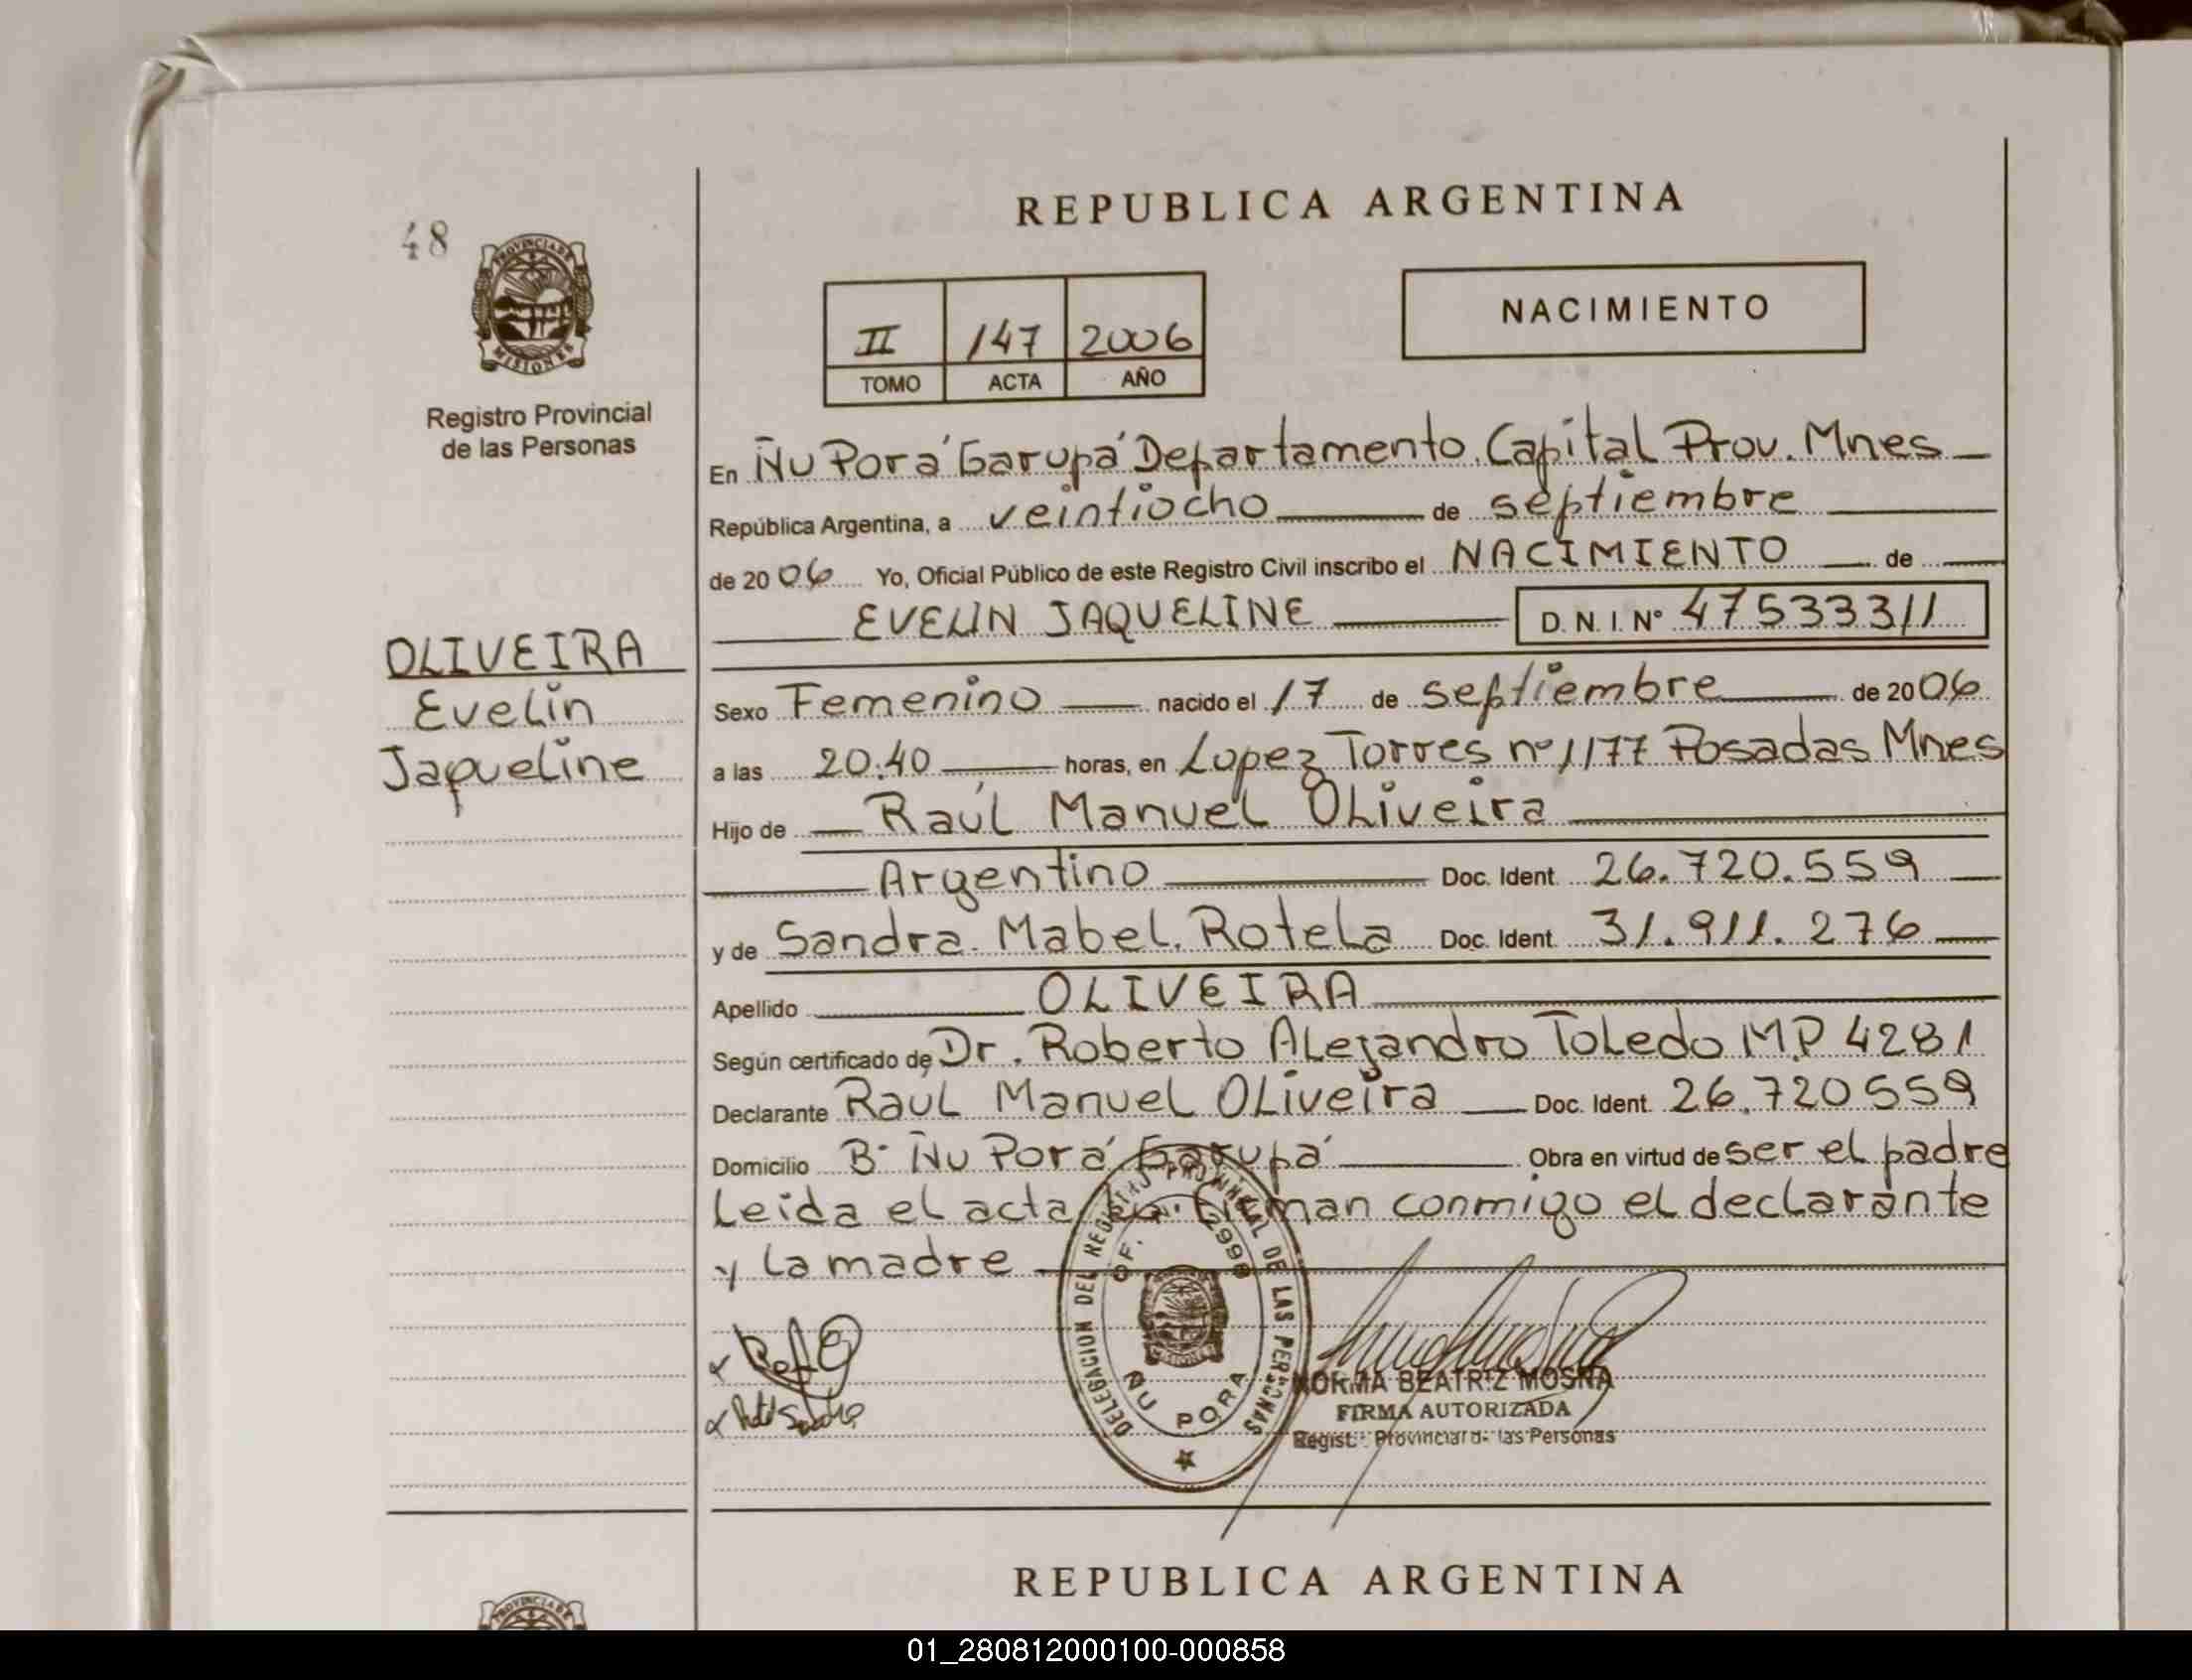 48
PROVINCIA DE
MISIONES
Registro Provincial
de las Personas
OLIVEIRA
Evelin
Jaqueline
REPUBLICA ARGENTINA
II 147 2006
TOMO ACTA AÑO
NACIMIENTO
En Ñu Porá Garupá Departamento Capital Prov. Mnes
República Argentina, a veintiocho de septiembre
de 2006 Yo, Oficial Público de este Registro Civil inscribo el NACIMIENTO de
EVELIN JAQUELINE D.N.I. Nº 47533311
Sexo Femenino nacido el 17 de septiembre de 2006
a las 20.40 horas, en Lopez Torres nº 1177 Posadas Mnes
Hijo de Raúl Manuel Oliveira
Argentino Doc. Ident. 26.720.559
y de Sandra Mabel Rotela Doc. Ident. 31.911.276
Apellido OLIVEIRA
Según certificado de Dr. Roberto Alejandro Toledo M.P 4281
Declarante Raúl Manuel Oliveira Doc. Ident. 26.720559
Domicilio Bº Ñu Porá Garupá Obra en virtud de ser el padre
Leida el acta la firman conmigo el declarante
y la madre
DELEGACION DEL REGISTRO PROVINCIAL DE LAS PERSONAS
OF.
ÑU PORA
NORMA BEATRIZ MOSNA
FIRMA AUTORIZADA
Regist. Provincial de las Personas
REPUBLICA ARGENTINA
PROVINCIA DE
01_280812000100-000858